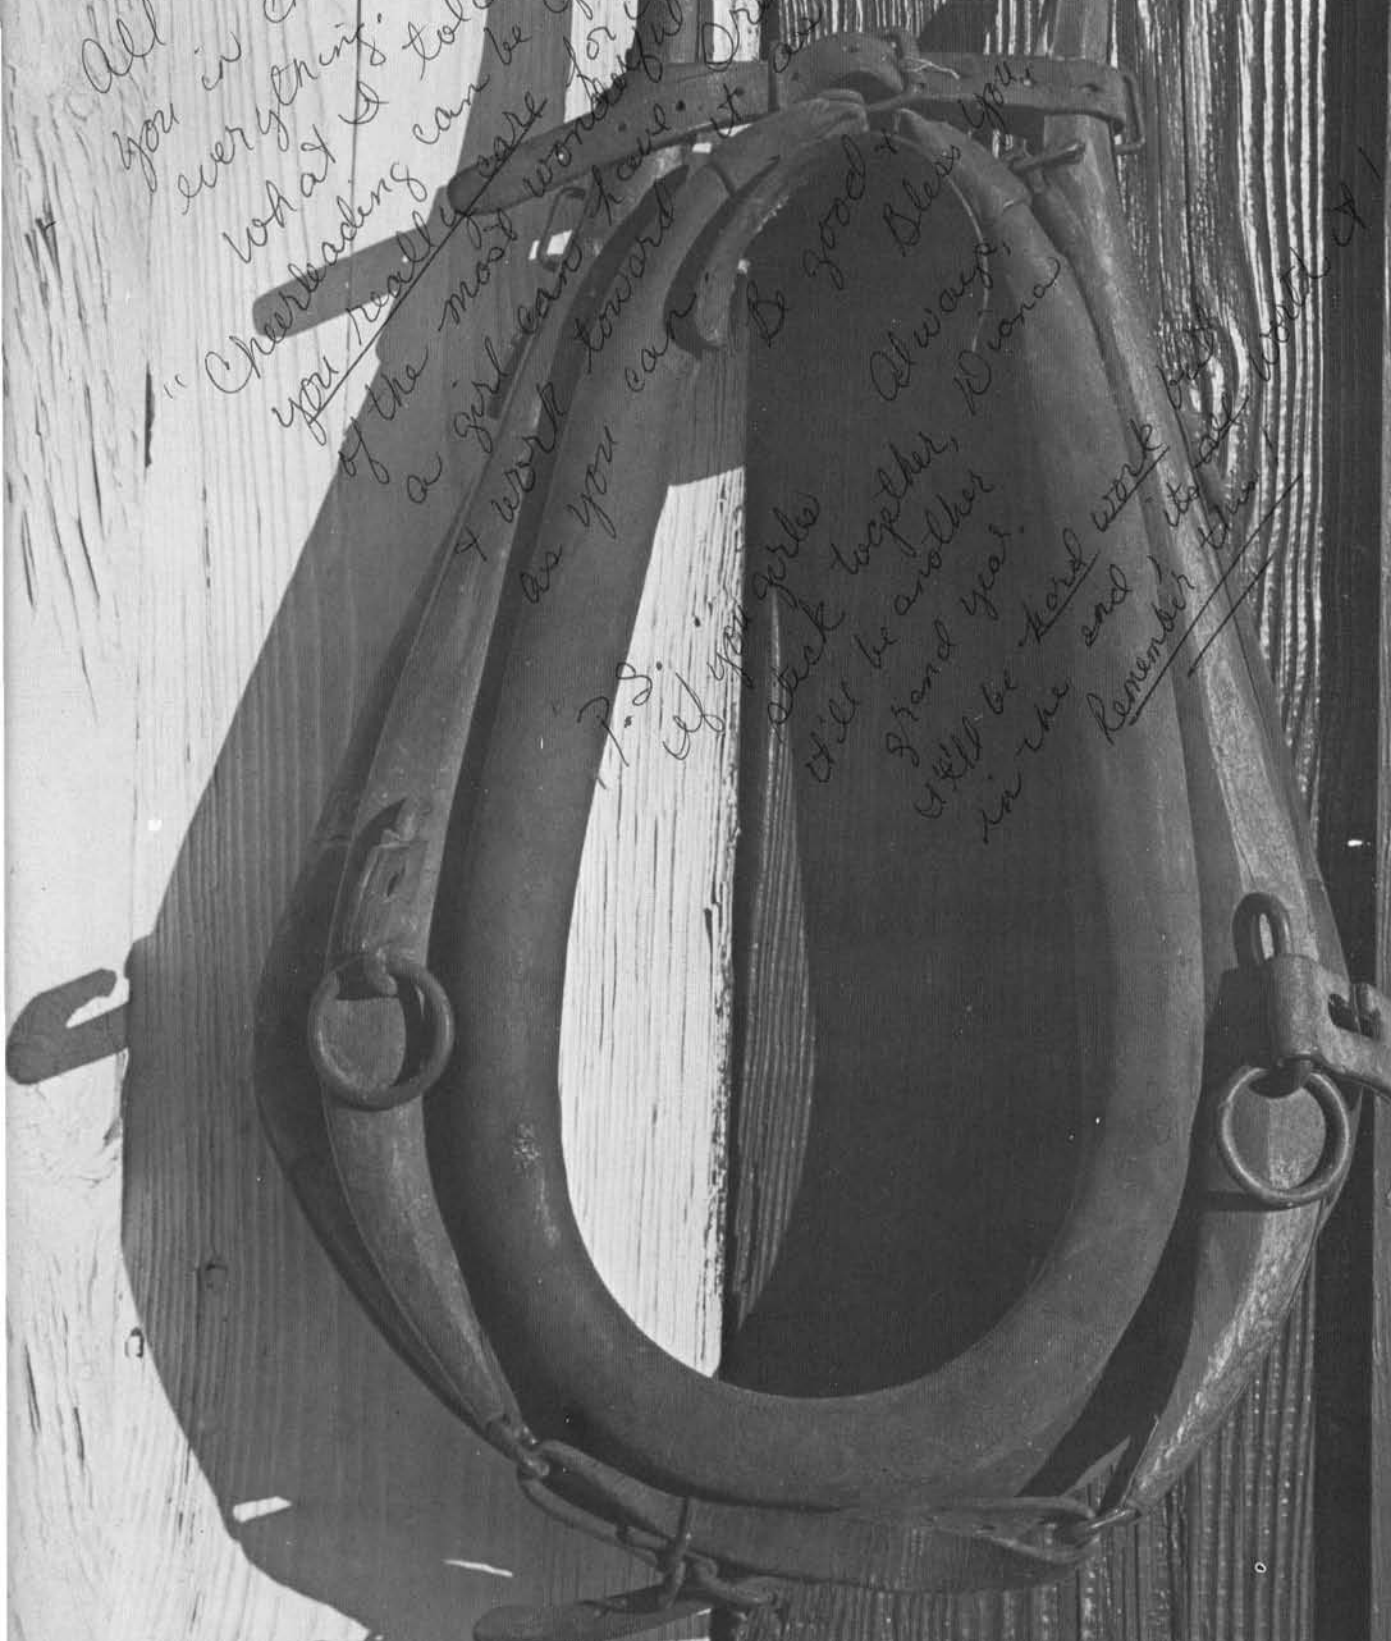 All
you in
everything.
what I told
"Cheerleading can be
you really care for
of the most wonderful
a girl can have.
& work toward it as
as you can.
Be good &
Bless you,
Always,
Diana
P.S.
If you girls
stick together,
it'll be another
grand year.
It'll be hard work but
in the end its all worth it!
Remember this!